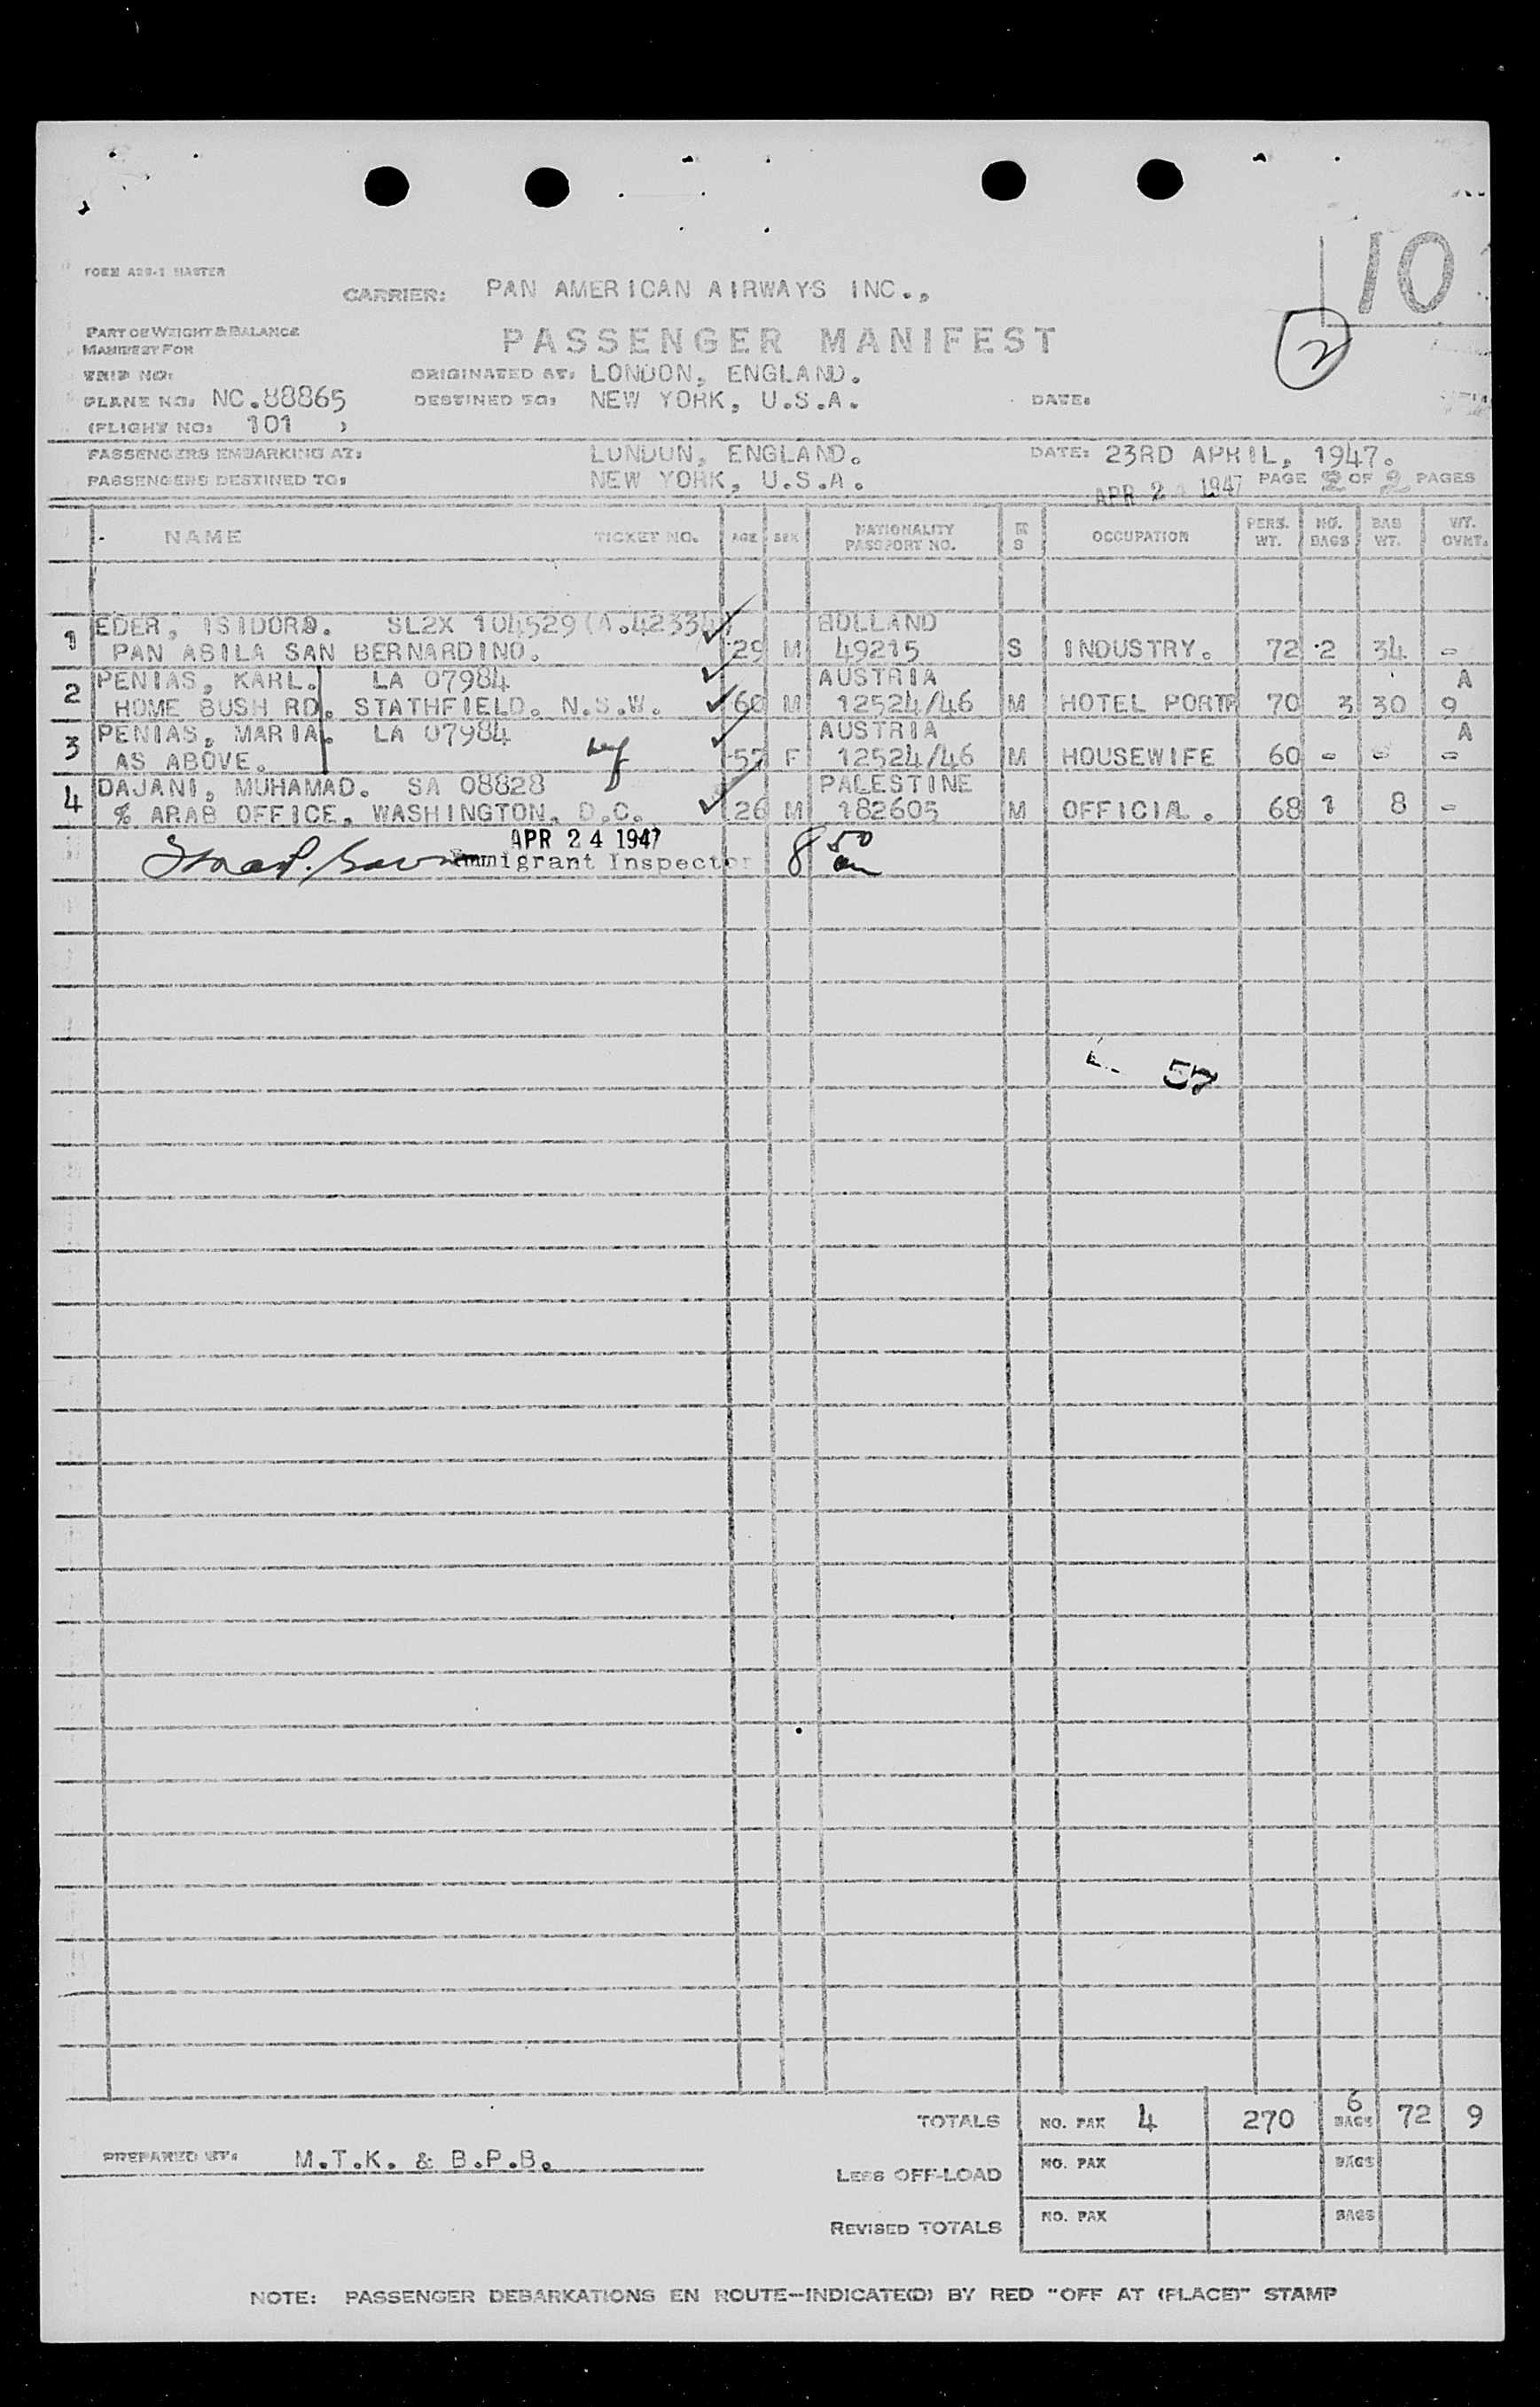 FORM ADB-1 MASTER
10
CARRIER: PAN AMERICAN AIRWAYS INC.,
PART OF WEIGHT & BALANCE
MANIFEST FOR
PASSENGER MANIFEST
2
TRIP NO:
ORIGINATED AT: LONDON, ENGLAND.
PLANE NO. NC.88865
DESTINED TO: NEW YORK, U.S.A.
DATE:
(FLIGHT NO: 101 )
PASSENGERS EMBARKING AT: LONDON, ENGLAND. DATE: 23RD APRIL, 1947.
PASSENGERS DESTINED TO: NEW YORK, U.S.A. APR 2 1947 PAGE 2 OF 2 PAGES
NAME TICKET NO. AGE SEX NATIONALITY PASSPORT NO. M S OCCUPATION PERS. WT. NO. BAGS BAG WT. WT. OVHT.
1 EDER, ISIDORO. SL2X 104529 (A.42334) HOLLAND
PAN ASILA SAN BERNARDINO. 29 M 49215 S INDUSTRY. 72 2 34 -
2 PENIAS, KARL. LA 07984 AUSTRIA A
HOME BUSH RD. STATHFIELD. N.S.W. 60 M 12524/46 M HOTEL PORTR 70 3 30 9
3 PENIAS, MARIA. LA 07984 wf AUSTRIA A
AS ABOVE. 55 F 12524/46 M HOUSEWIFE 60 - - -
4 DAJANI, MUHAMAD. SA 08828 PALESTINE
% ARAB OFFICE, WASHINGTON, D.C. 26 M 182605 M OFFICIA. 68 1 8 -
APR 24 1947
Immigrant Inspector 8 50 am
57
TOTALS NO. PAX 4 270 6 BAGS 72 9
PREPARED BY: M.T.K. & B.P.B.
LESS OFF-LOAD NO. PAX BAGS
REVISED TOTALS NO. PAX BAGS
NOTE: PASSENGER DEBARKATIONS EN ROUTE—INDICATE(D) BY RED "OFF AT (PLACE)" STAMP